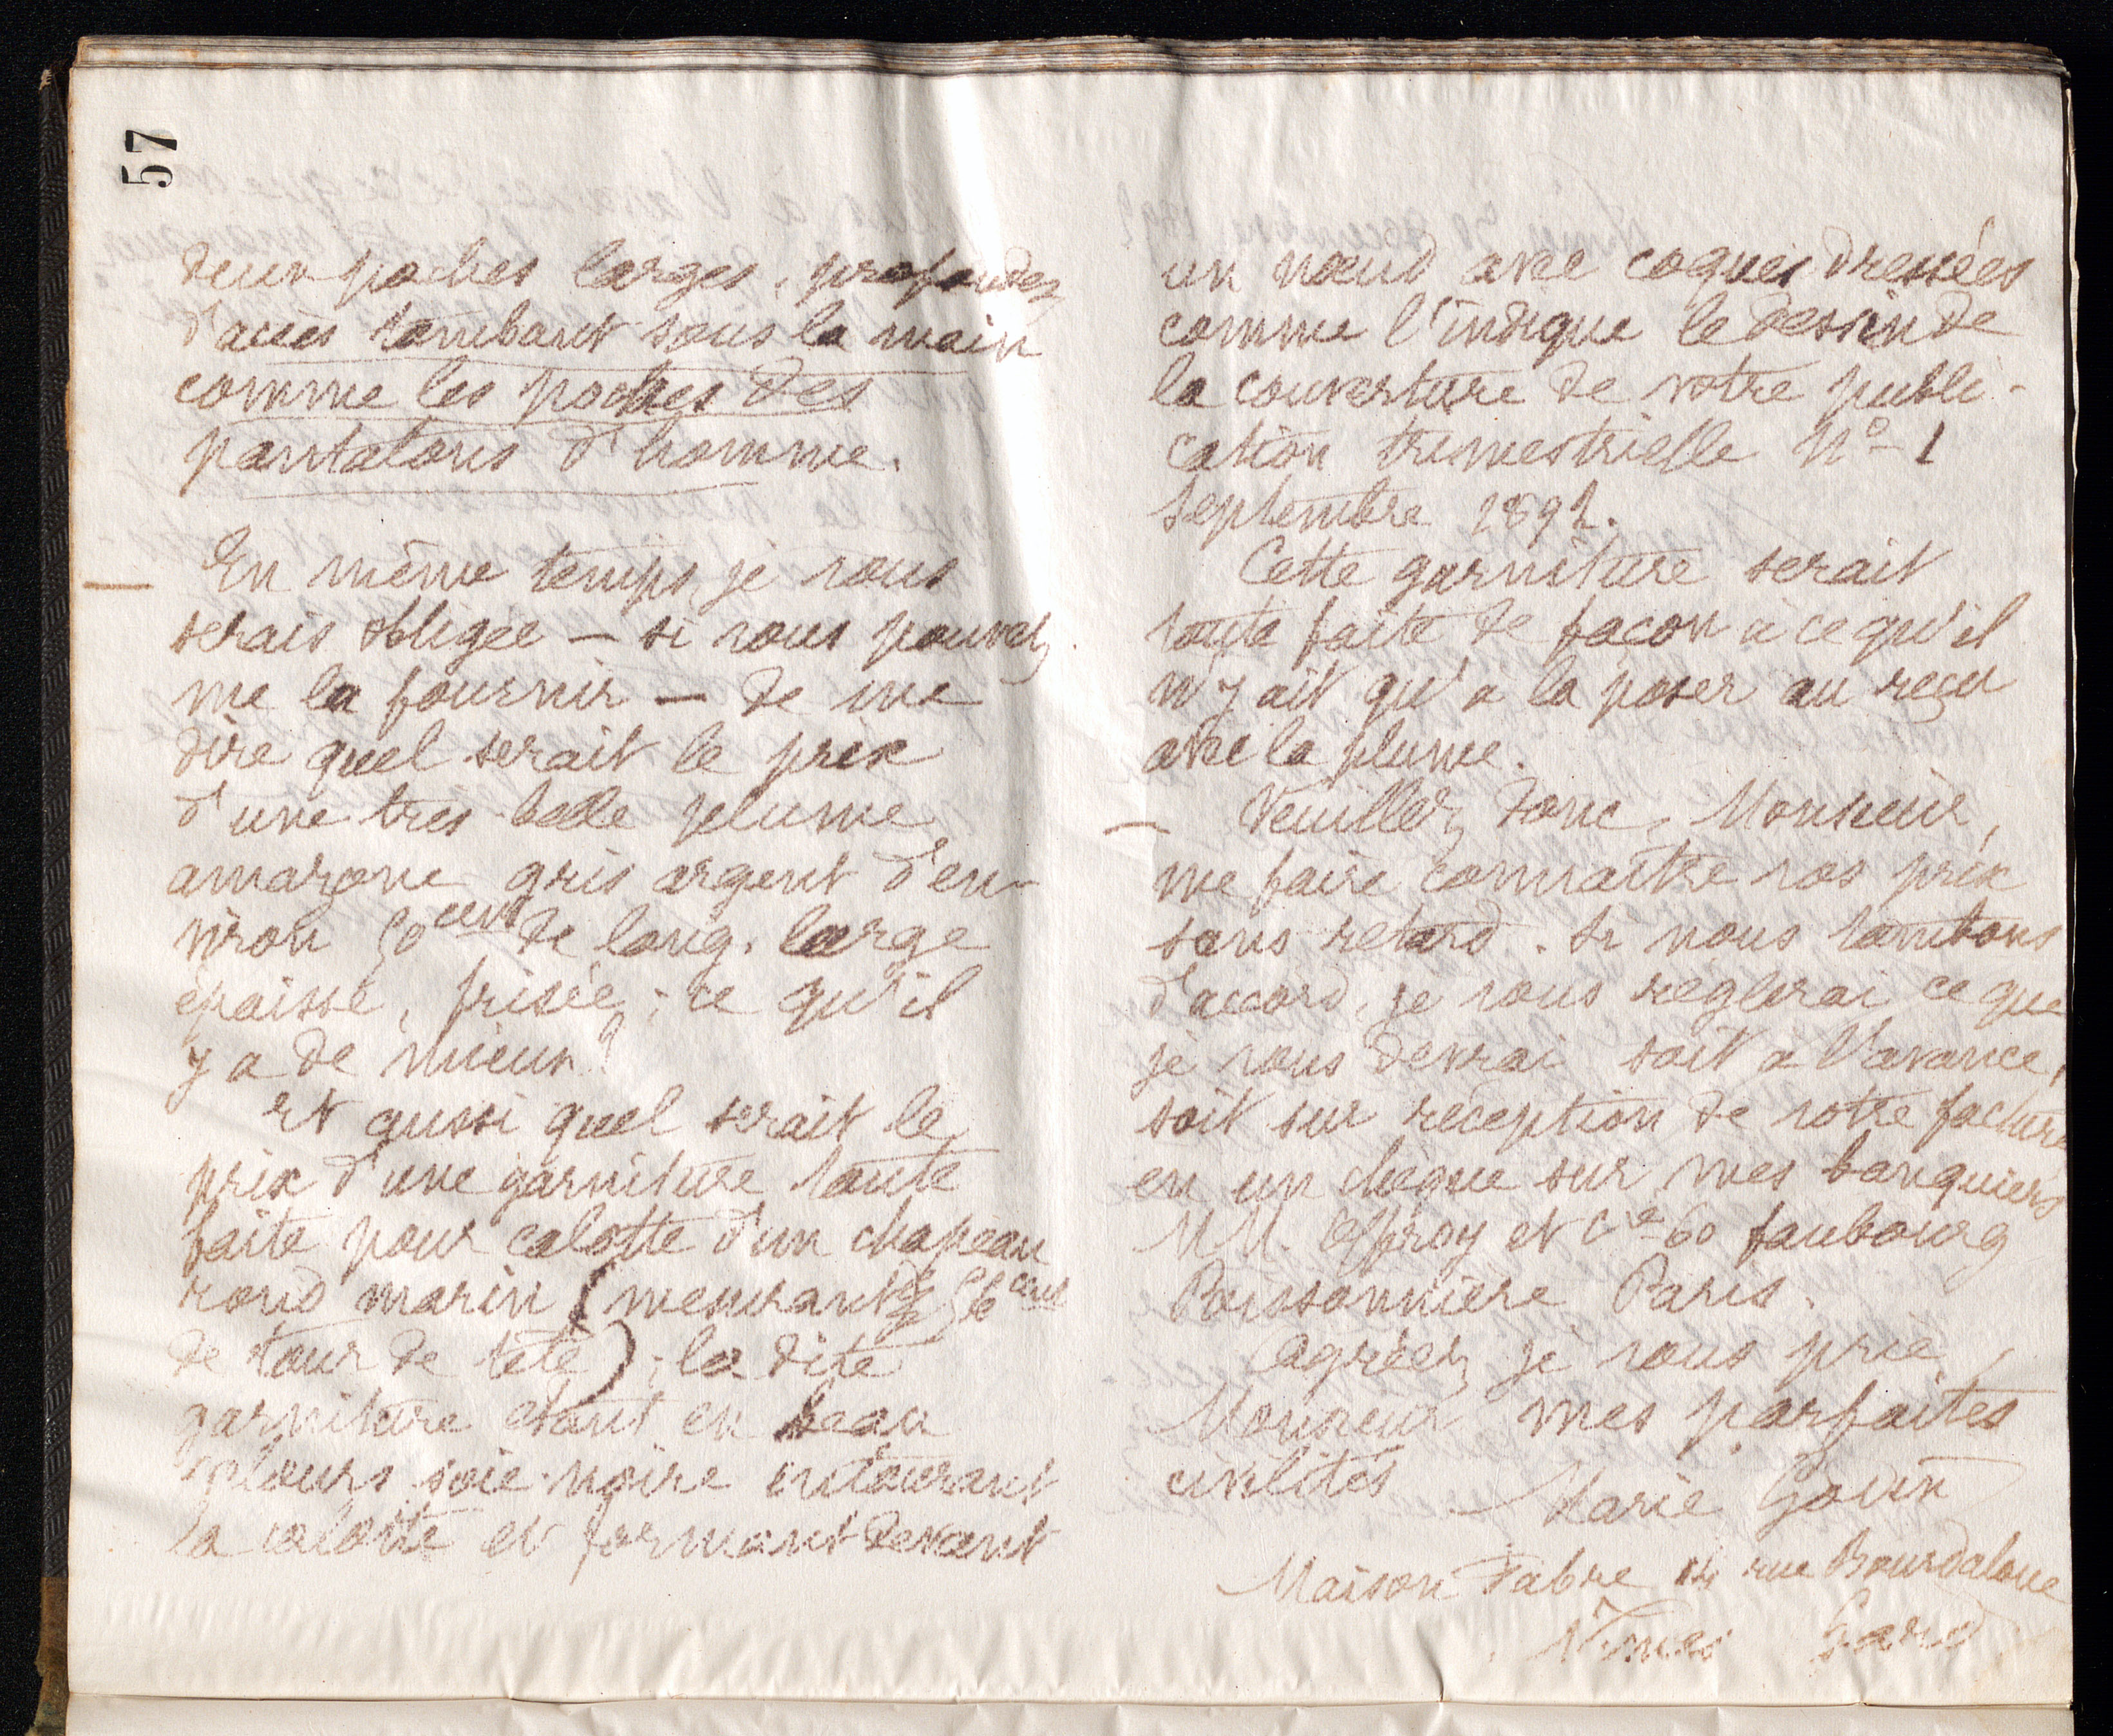 57
deux poches larges, profondes
d'accès tombant sous la main
comme les poches des
pantalons d'homme.
— En même temps, je vous
serais obligée — si vous pouvez
me la fournir — de me
dire quel serait le prix
d'une très belle plume
amazone gris argent d'en-
viron 50 cent de long. large
épaisse, frisée ; ce qu'il
y a de mieux ?
Et aussi quel serait le
prix d'une garniture toute
faite pour calotte d'un chapeau
rond marin (mesurant 56 cent
de tour de tête) ; la dite
garniture étant en beau
velours soie noire entourant
la calotte et formant devant
un nœud avec coques dressées
comme l'indique le dessin de
la couverture de votre publi-
cation trimestrielle N° 1
Septembre 1892.
Cette garniture serait
toute faite de façon à ce qu'il
n'y ait qu'a la poser au reçu
avec la plume.
— Veuillez donc, Monsieur,
me faire connaître vos prix
sans retard. Si nous tombons
d'accord, je vous règlerai ce que
je vous devrai soit a l'avance,
soit sur réception de votre facture
en un chèque sur mes banquiers
MM. Offroy et Cie 60 faubourg
Poissonnière Paris.
Agréez, je vous prie,
Monsieur mes parfaites
civilités
Marie Gouin
Maison Fabre 14 rue Bourdaloue
Nîmes Gard